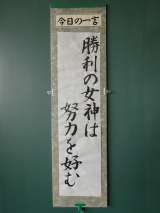 今日の一言
勝利の女神は
努力を好む